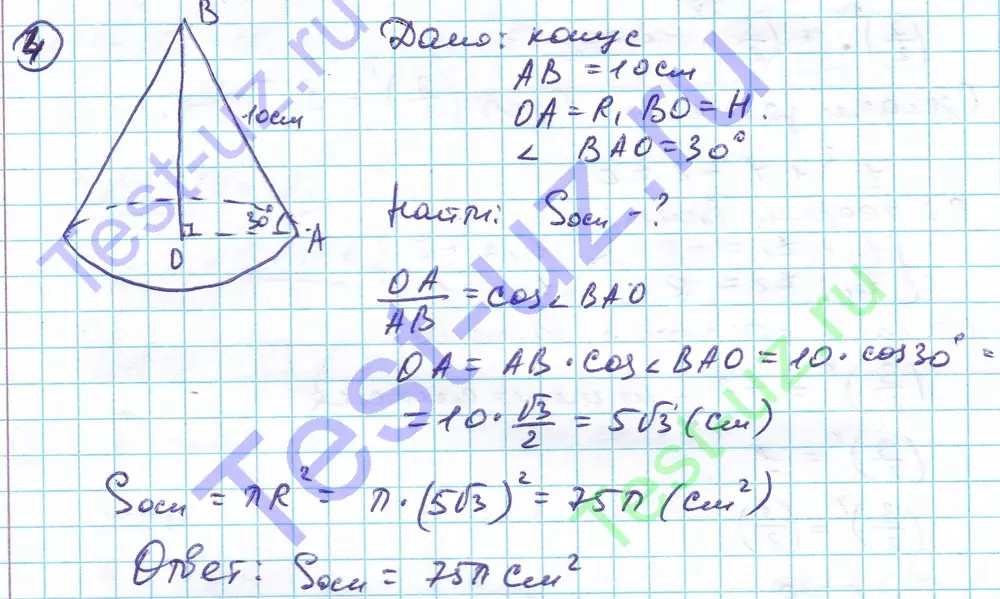 4
B
10см
30°
A
O
Дано: конус
AB = 10см
OA = R, BO = H.
∠ BAO = 30°
Найти: Sосн - ?
OA/AB = cos∠BAO
OA = AB · cos∠BAO = 10 · cos30° =
= 10 · √3/2 = 5√3 (см)
Sосн = πR² = π · (5√3)² = 75π (см²)
Ответ: Sосн = 75π см²
Test-uz.ru
Test-uz.ru
Test-uz.ru